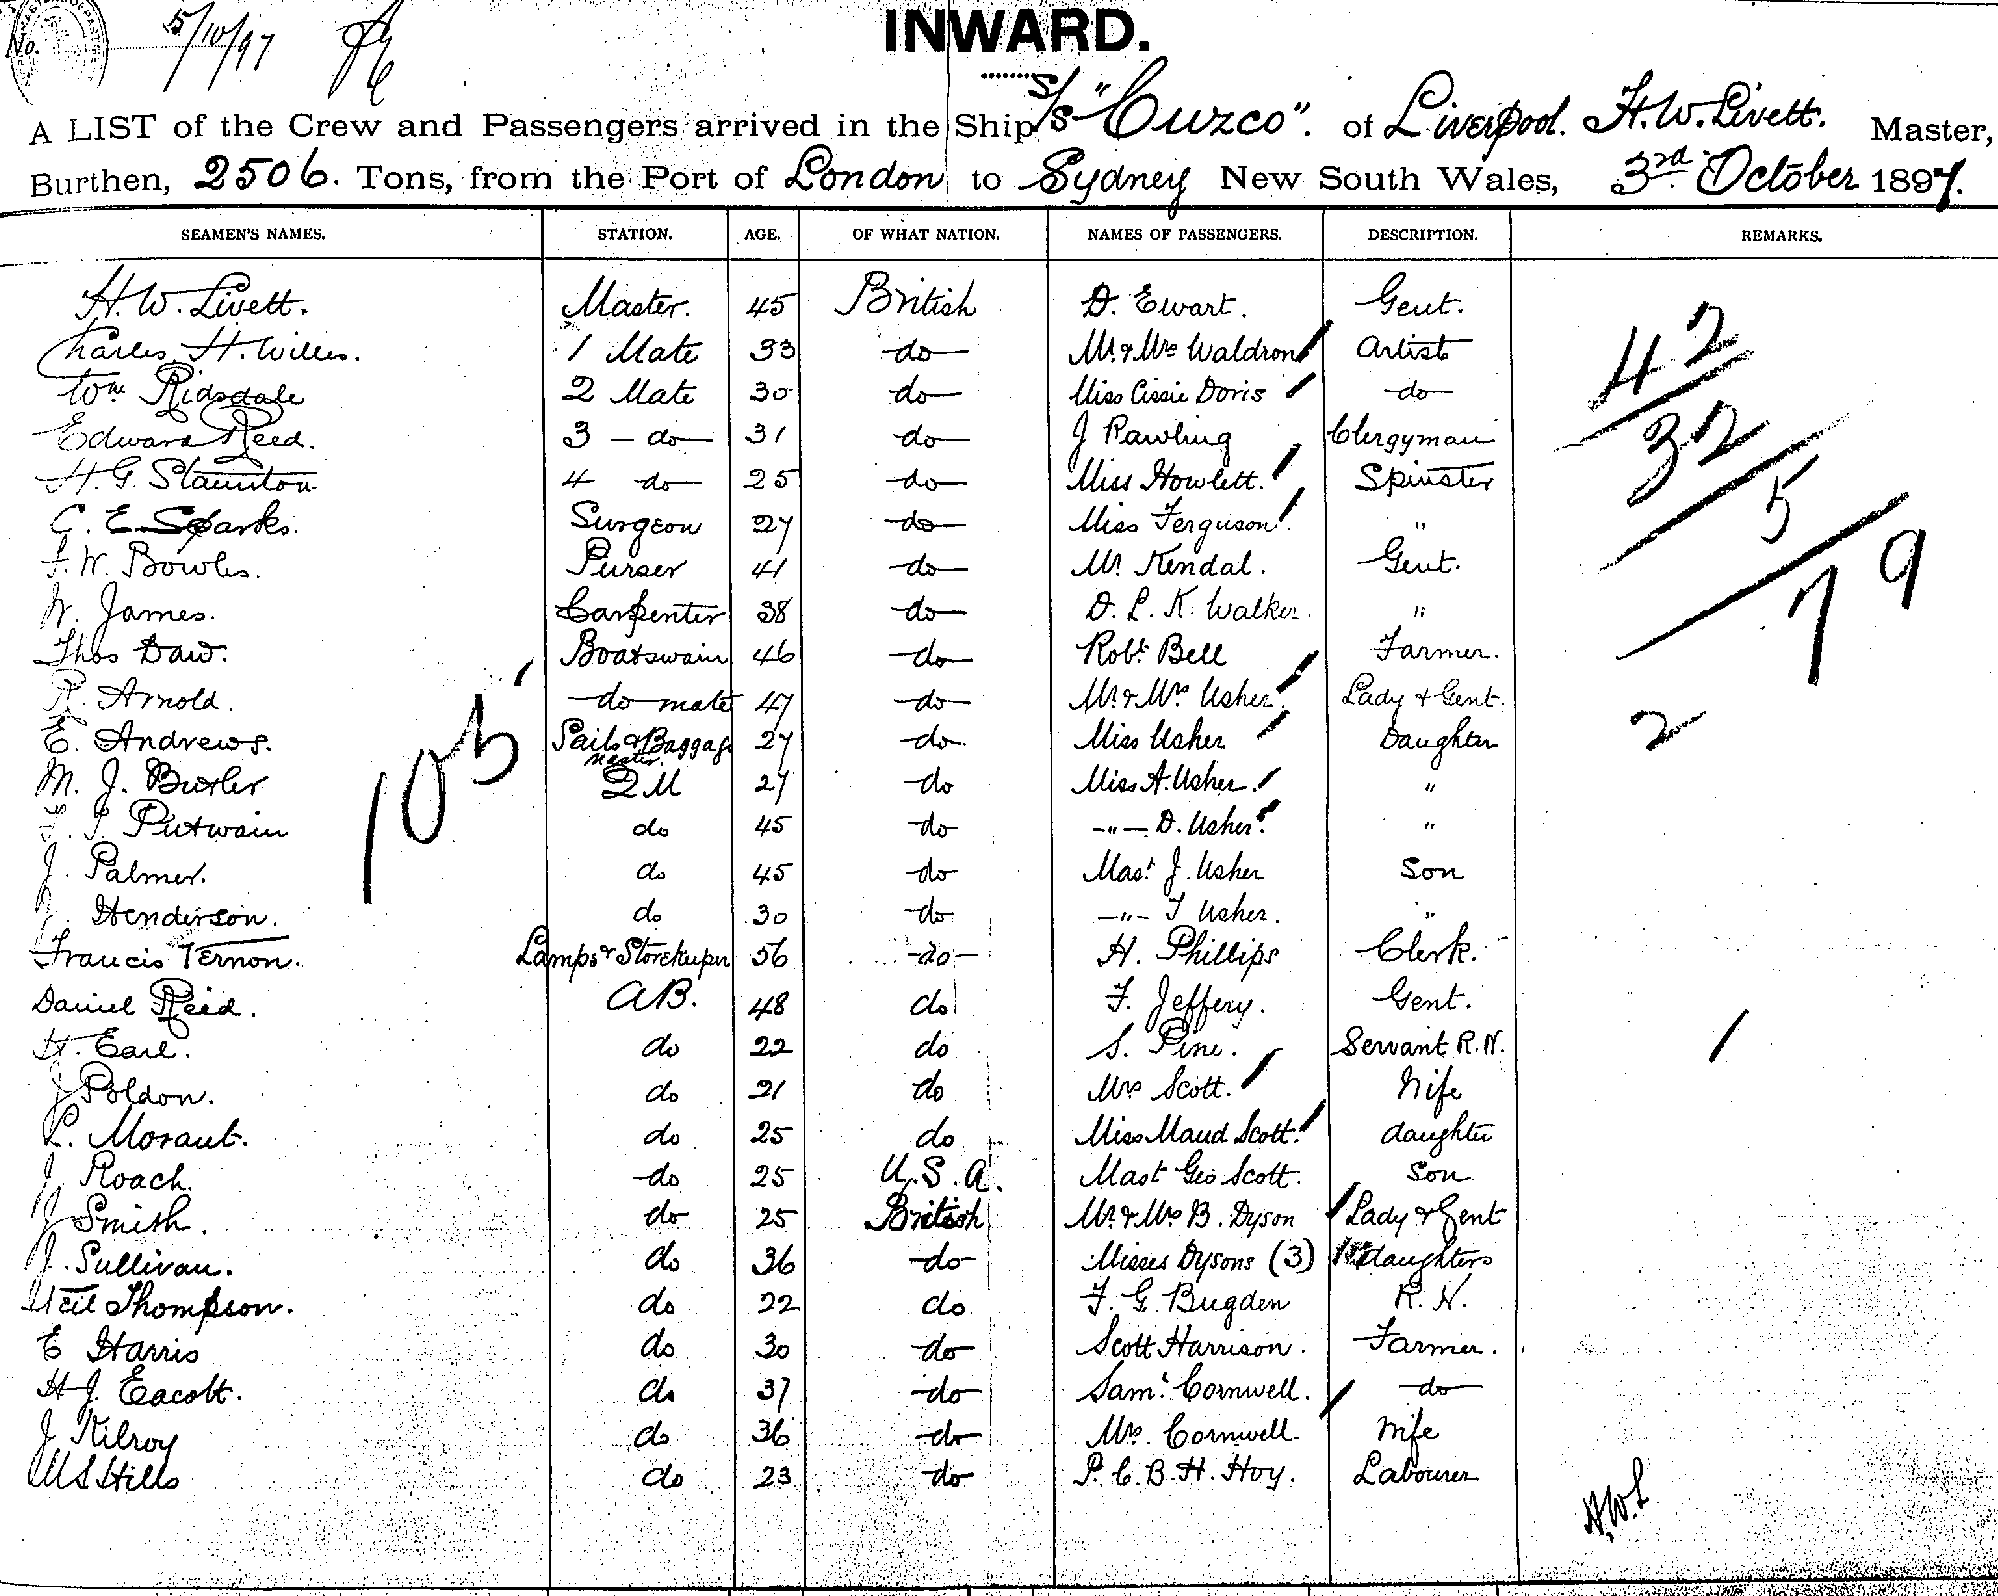 No. 5/10/97
INWARD.
A LIST of the Crew and Passengers arrived in the Ship S/S "Cuzco". of Liverpool. H.W. Livett. Master,
Burthen, 2506. Tons, from the Port of London to Sydney New South Wales, 3rd October 1897.
SEAMEN'S NAMES. STATION. AGE. OF WHAT NATION. NAMES OF PASSENGERS. DESCRIPTION. REMARKS.
H.W. Livett. Master. 45 British D. Ewart. Gent.
Charles H. Willes. 1 Mate 33 do Mr & Mrs Waldron Artist 42
Wm Ridsdale 2 Mate 30 do Miss Cissie Doris do
Edward Reed. 3 do 31 do J Rawling Clergyman 32
H.G. Staunton 4 do 25 do Miss Howlett. Spinster
C. E. Sparks. Surgeon 27 do Miss Ferguson. " 5
F.W. Bowles. Purser 41 do Mr. Kendal. Gent.
W. James. Carpenter 38 do D. L. K. Walker. " 79
Thos Daw. Boatswain 46 do Robt Bell Farmer.
R. Arnold. do mate 47 do Mr & Mrs Usher Lady & Gent.
E. Andrews. Sails & Baggage Master. 27 do Miss Usher Daughter 2
M. J. Butler QM 27 do Miss A. Usher. "
105
Putwain do 45 do -"- D. Usher. "
J. Palmer. do 45 do Mast J. Usher Son
Henderson. do 30 do -"- T Usher. "
Francis Vernon. Lamps & Storekeeper 56 do H. Phillips Clerk.
Daniel Reid. AB. 48 do F. Jeffery. Gent.
H. Earl. do 22 do S. Pine. Servant R.N.
J Poldon. do 21 do Mrs Scott. Wife
L. Moraut. do 25 do Miss Maud Scott. daughter
J. Roach. do 25 U.S.A. Mast Geo Scott. Son
J Smith. do 25 British Mr & Mrs B. Dyson Lady & Gent
J. Sullivan. do 36 do Misses Dysons (3) daughters
Neil Thompson. do 22 do F. G. Bugden R.N.
E Harris do 30 do Scott Harrison. Farmer.
H J. Eacott. do 37 do Saml Cornwell. do
J Kilroy do 36 do Mrs. Cornwell. Wife
W S Hills do 23 do P. C. B. H. Hoy. Labourer
H.W.L